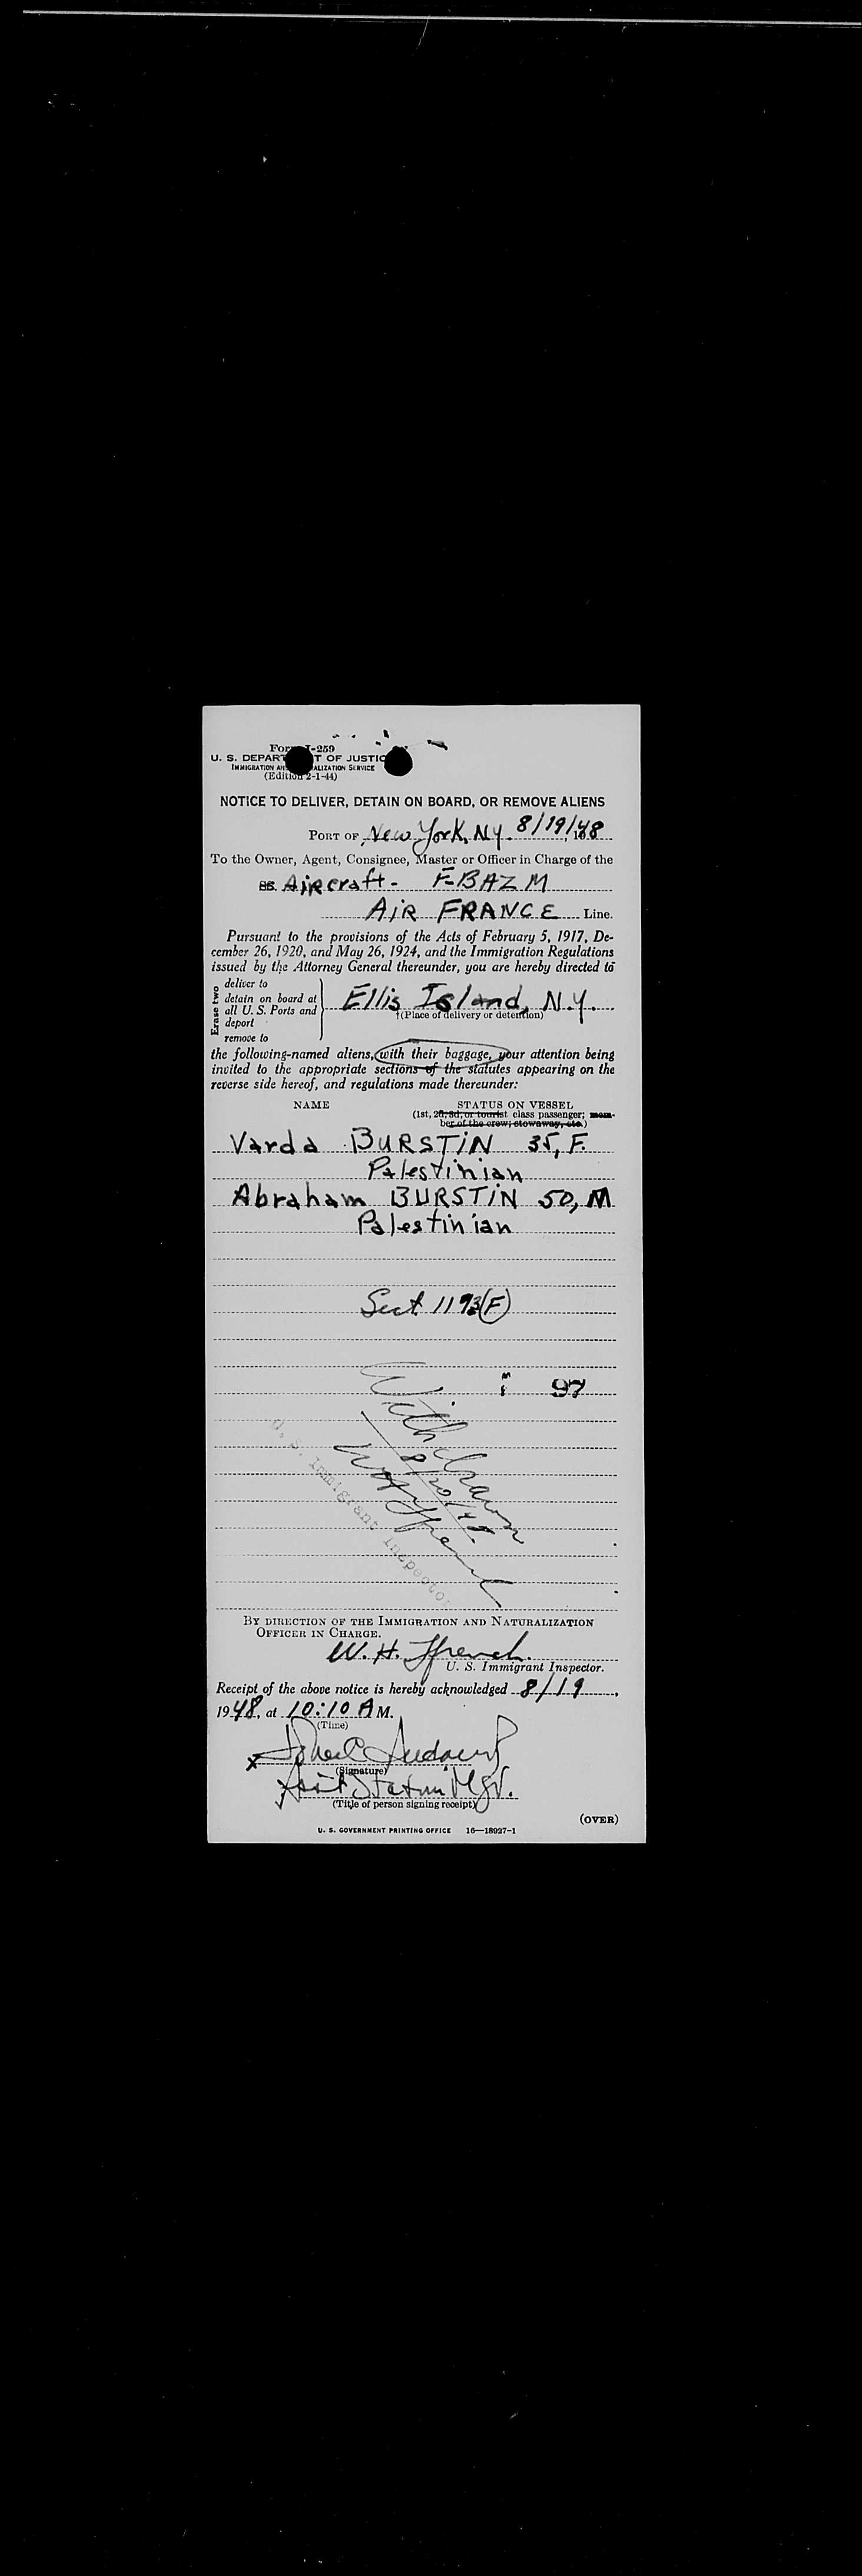 Form I-259
U. S. DEPARTMENT OF JUSTICE
IMMIGRATION AND NATURALIZATION SERVICE
(Edition 2-1-44)
NOTICE TO DELIVER, DETAIN ON BOARD, OR REMOVE ALIENS
PORT OF New York, N.Y. 8/19/48
To the Owner, Agent, Consignee, Master or Officer in Charge of the
SS. Aircraft - F-BAZM
AIR FRANCE Line.
Pursuant to the provisions of the Acts of February 5, 1917, De-
cember 26, 1920, and May 26, 1924, and the Immigration Regulations
issued by the Attorney General thereunder, you are hereby directed to
Erase two
deliver to
detain on board at
all U. S. Ports and
deport
remove to
Ellis Island, N.Y.
†(Place of delivery or detention)
the following-named aliens, with their baggage, your attention being
invited to the appropriate sections of the statutes appearing on the
reverse side hereof, and regulations made thereunder:
NAME STATUS ON VESSEL
(1st, 2d, 3d, or tourist class passenger; mem-
ber of the crew; stowaway, etc.)
Varda BURSTIN 35, F.
Palestinian
Abraham BURSTIN 50, M
Palestinian
Sect. 11 93(F)
97
Withdrawn
8/20/48
U. S. Immigrant Inspector
BY DIRECTION OF THE IMMIGRATION AND NATURALIZATION
OFFICER IN CHARGE.
W. H. Ffrench.
U. S. Immigrant Inspector.
Receipt of the above notice is hereby acknowledged 8/19,
1948, at 10:10 A M.
(Time)
x
(Signature)
Asst Station Mgr.
(Title of person signing receipt)
(OVER)
U. S. GOVERNMENT PRINTING OFFICE 16—18927-1